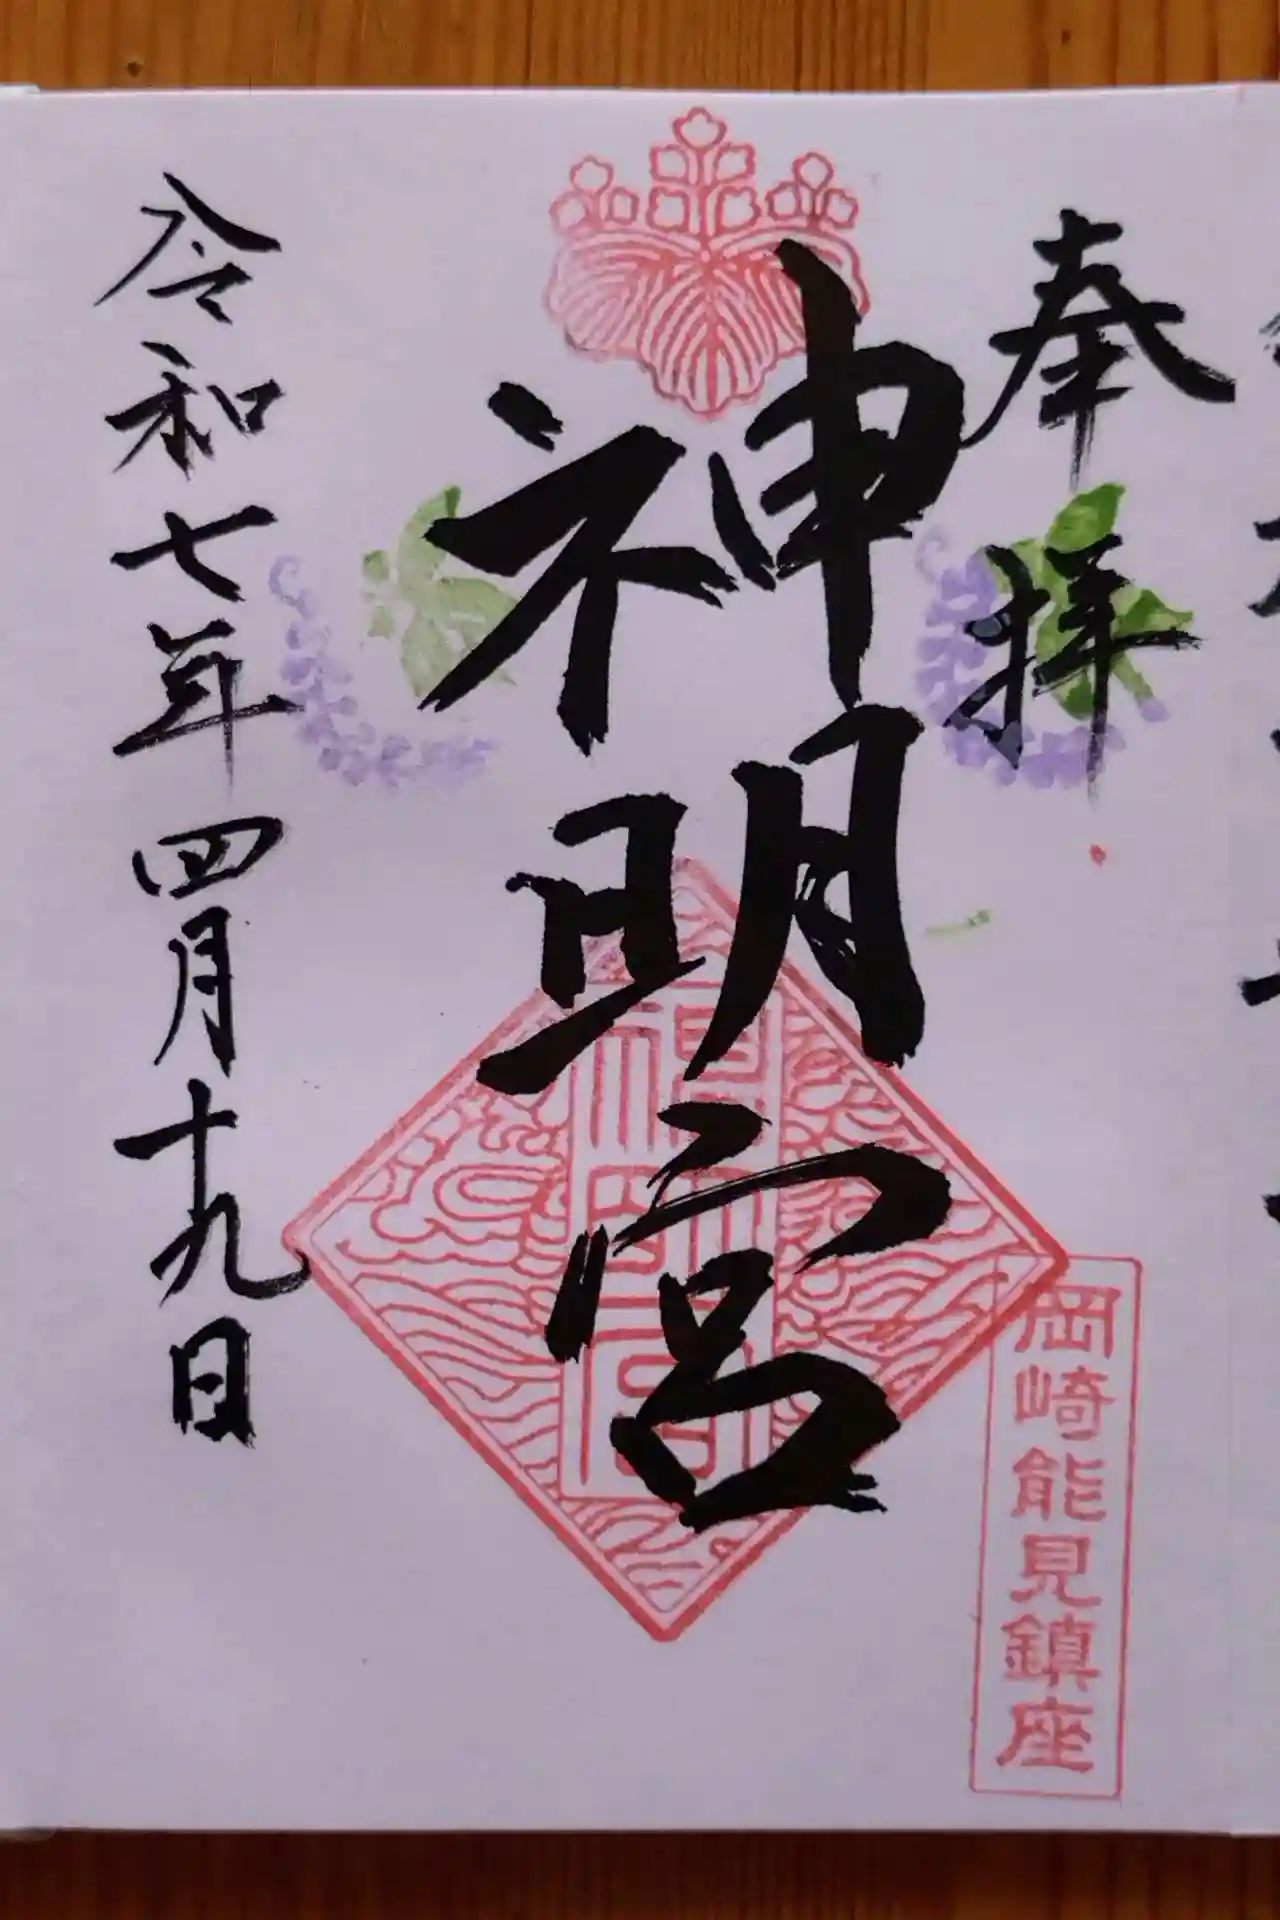 奉拝
神明宮
岡崎能見鎮座
神明宮
令和七年四月十九日